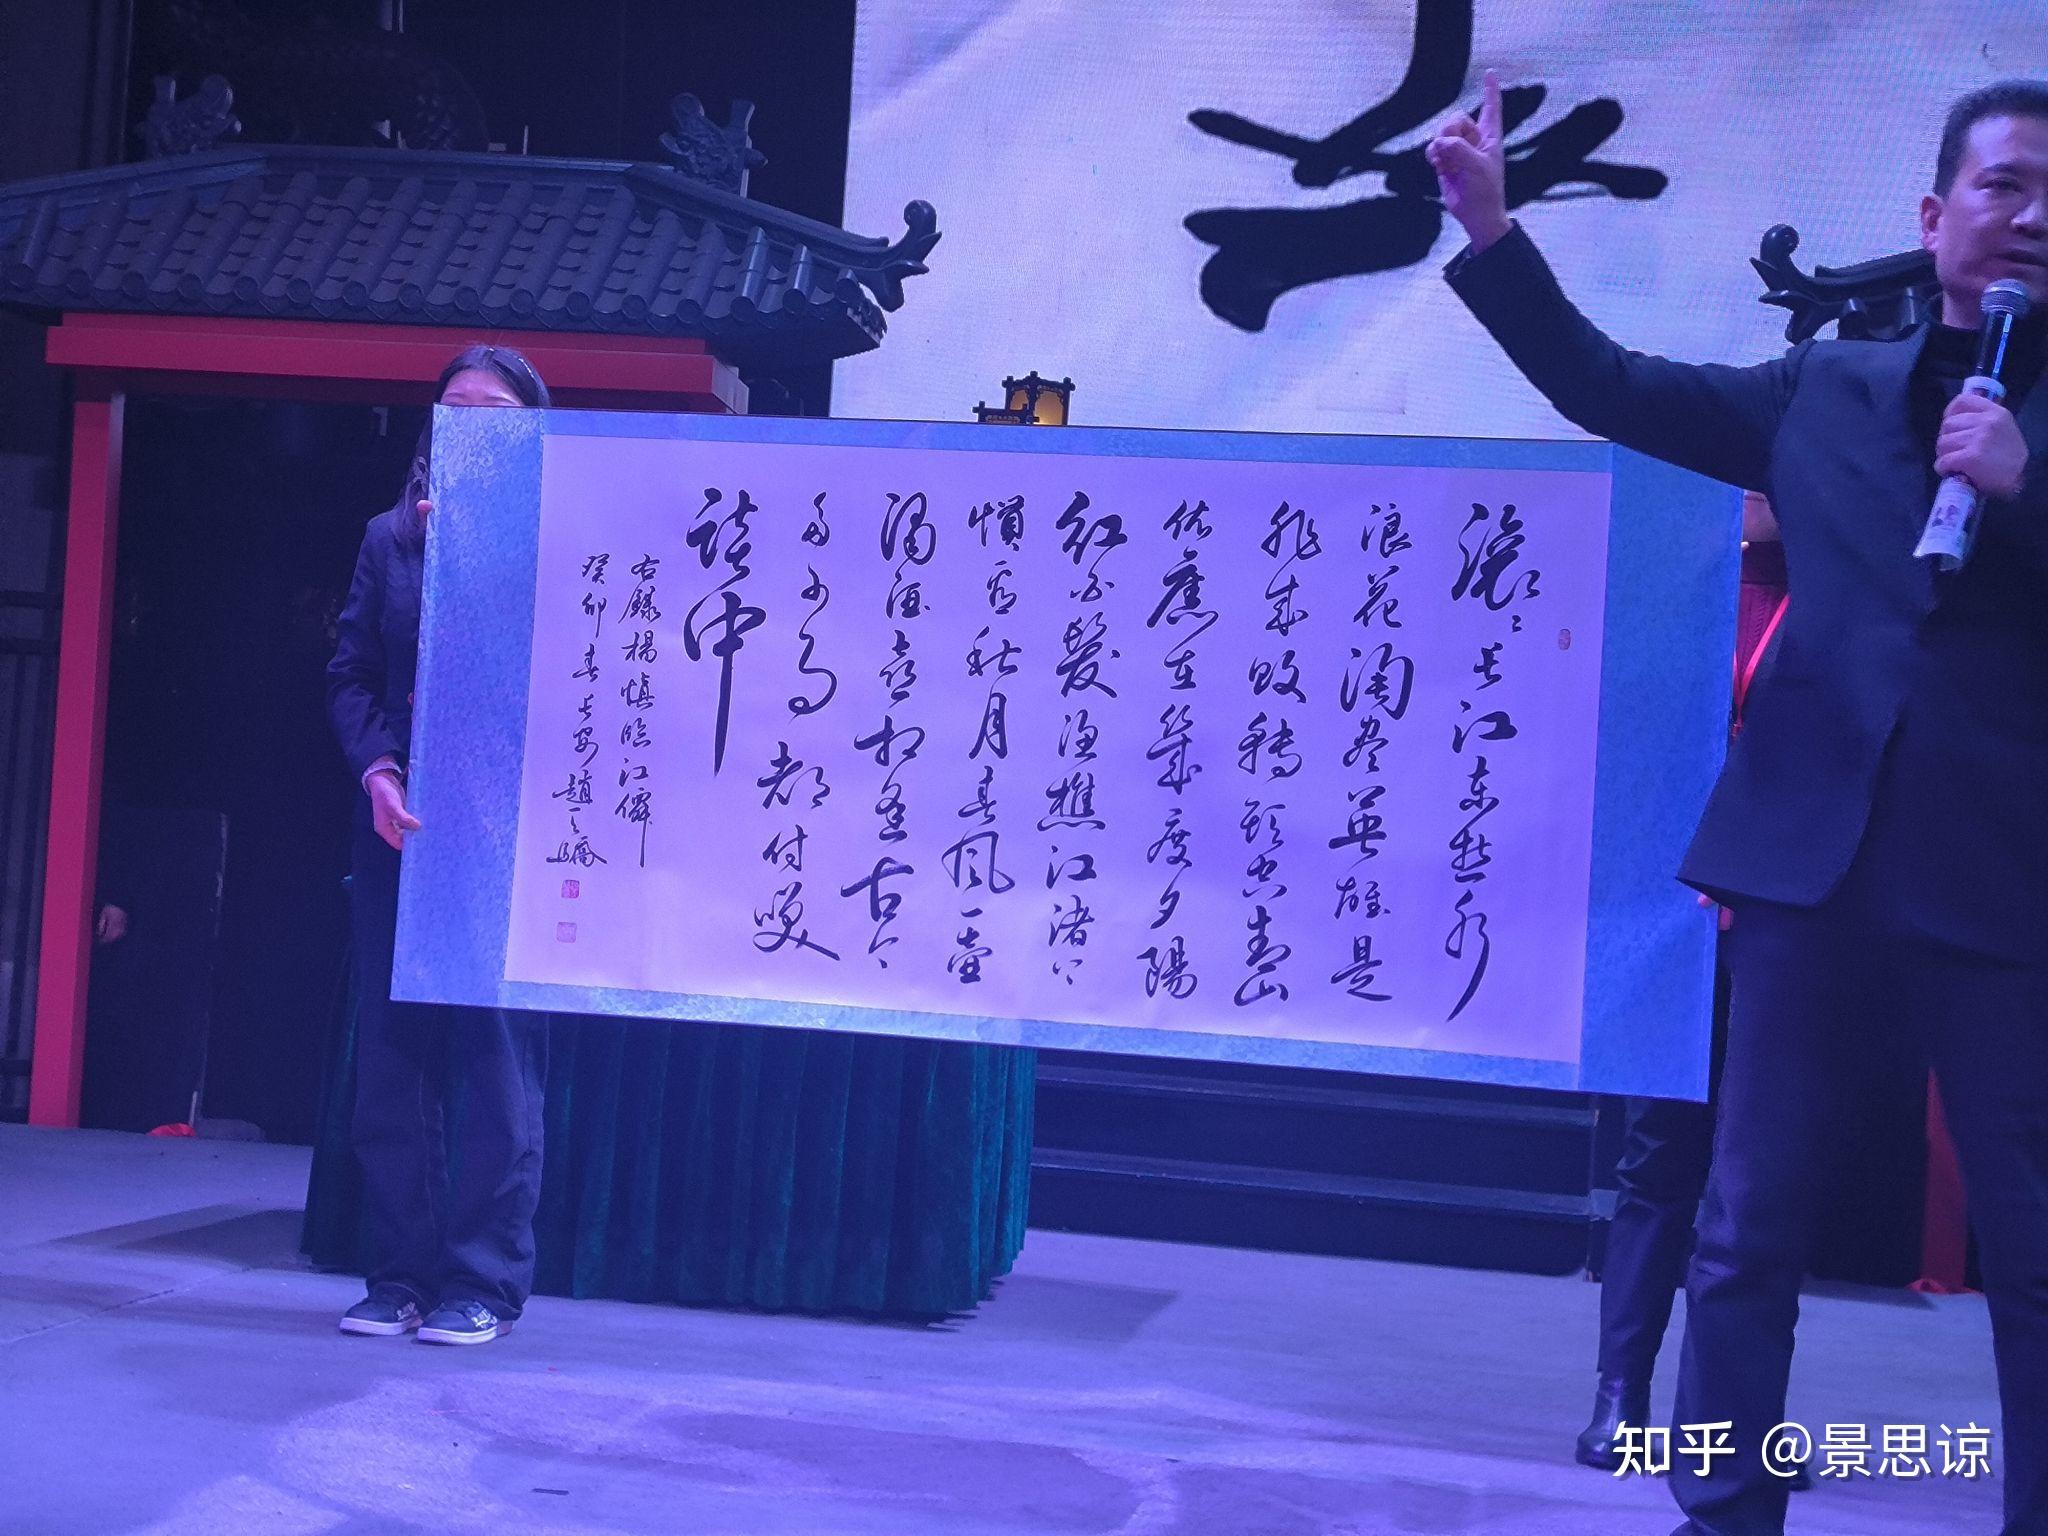 滚滚长江东逝水
浪花淘尽英雄是
非成败转头空青山
依舊在幾度夕陽
红白髮渔樵江渚上
慣看秋月春风一壶
濁酒喜相逢古今
多少事都付笑
談中
右錄楊慎臨江僊
癸卯春长安趙天驕
知乎 @景思谅